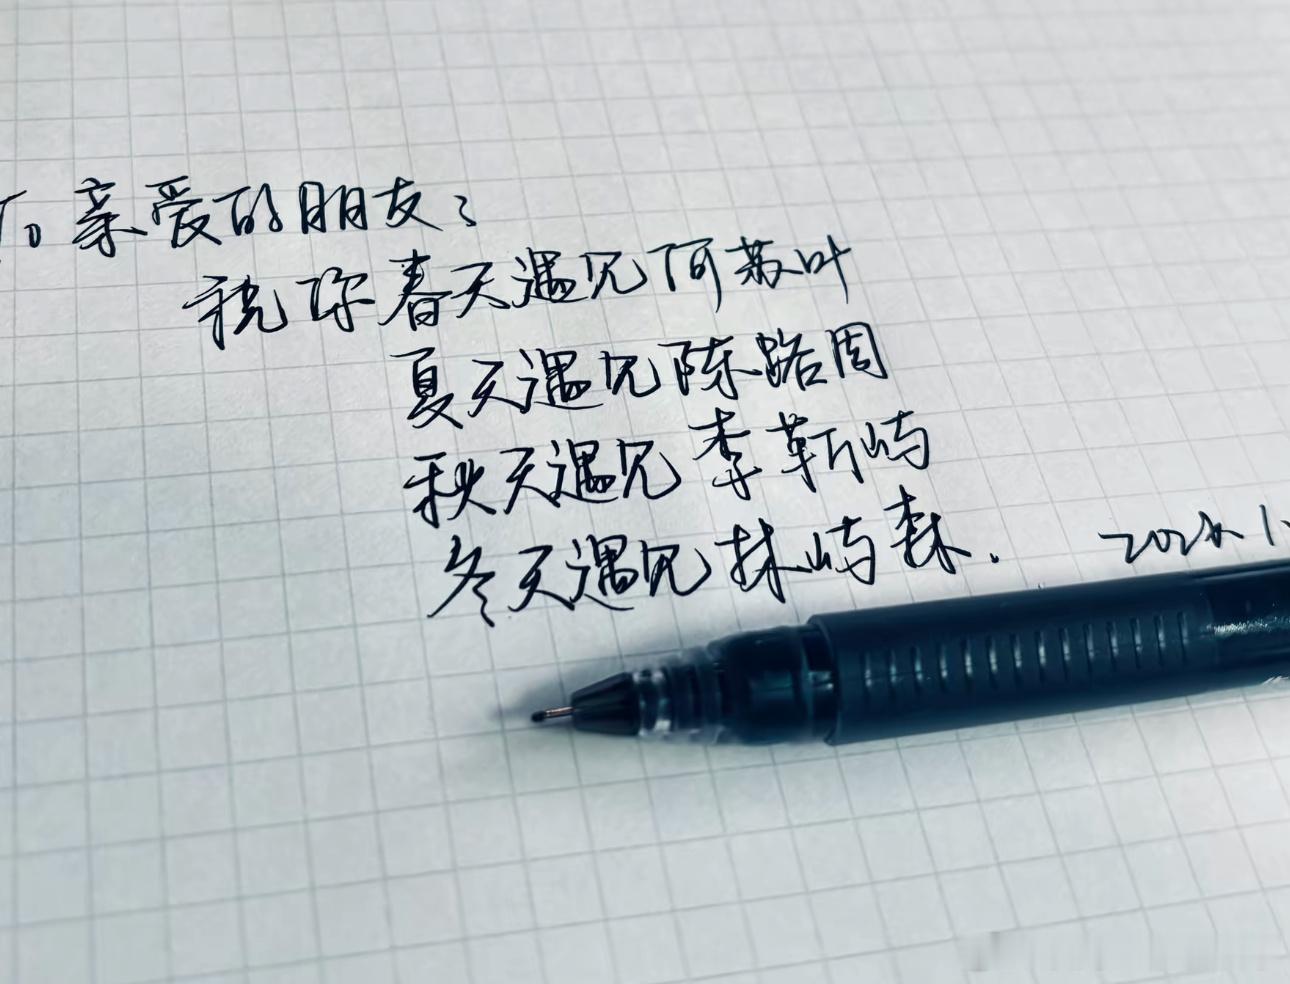 To 亲爱的朋友：
祝你春天遇见阿苏叶
夏天遇见陈路周
秋天遇见李靳屿
冬天遇见林屿森.